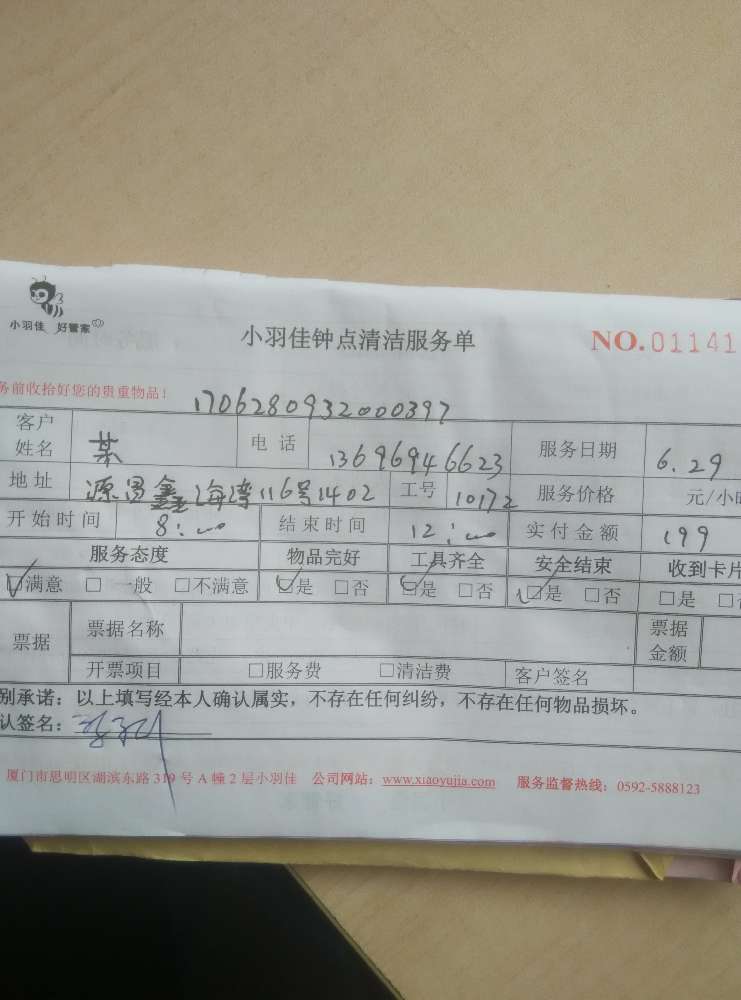 小羽佳 好管家
小羽佳钟点清洁服务单
NO.01141
务前收拾好您的贵重物品！
1706280932000397
客户姓名 某 电话 13696946623 服务日期 6.29
地址 源昌鑫海湾116号1402 工号 10172 服务价格 元/小时
开始时间 8:00 结束时间 12:00 实付金额 199
服务态度 物品完好 工具齐全 安全结束 收到卡片
☑满意 □一般 □不满意 ☑是 □否 ☑是 □否 ☑是 □否 □是 □
票据 票据名称 票据金额
开票项目 □服务费 □清洁费 客户签名
别承诺：以上填写经本人确认属实，不存在任何纠纷，不存在任何物品损坏。
认签名：
厦门市思明区湖滨东路319号A幢2层小羽佳 公司网站：www.xiaoyujia.com 服务监督热线：0592-5888123